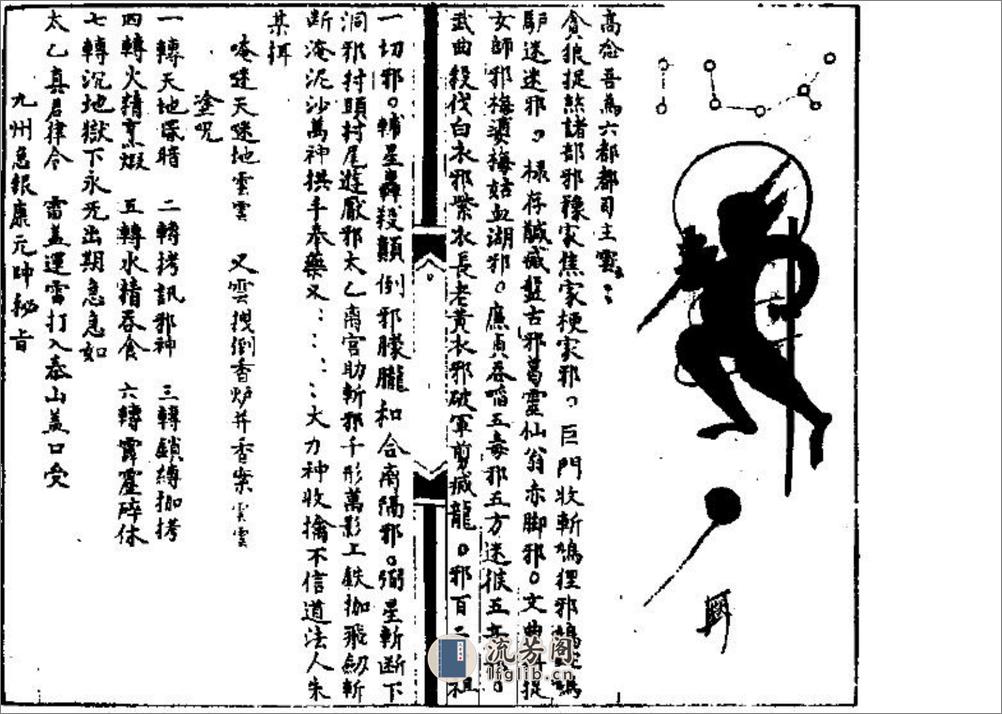 高念吾為六都都司主雲
貪狼捉然諸部邪豫家焦家梗家邪 巨門收斬鳩狸邪鳩
驴迷迷邪 禄存馘滅盤古邪葛靈仙翁赤脚邪 文曲 捉
女師邪梅婆梅姑血湖邪 廉貞吞啗五毒邪五方迷 五
武曲殺伐白衣邪紫衣長老黄衣邪破軍剪滅龍 邪百 祖
一切邪 輔星轟殺顛倒邪朦朧和合离隔邪 弼星斬断下
洞邪村頭村尾遊厭邪太乙离宮助斬邪千形萬影工鉄枷飛劔斬
断淹泥沙萬神拱手奉藥叉 大力神收擒不信道法人朱
某拝
唵迷天迷地雲雲 又雲拽倒香炉并香案雲雲
塗呪
一轉天地昏暗 二轉拷訊邪神 三轉鎖縛枷拷
四轉火精烹煅 五轉水精吞食 六轉霹靂碎体
七轉沉地獄下永无出期急急如
太乙真君律令 雷盖運雷打入泰山盖口受
九州急報康元帥秘旨
流芳阁
lfglib.cn